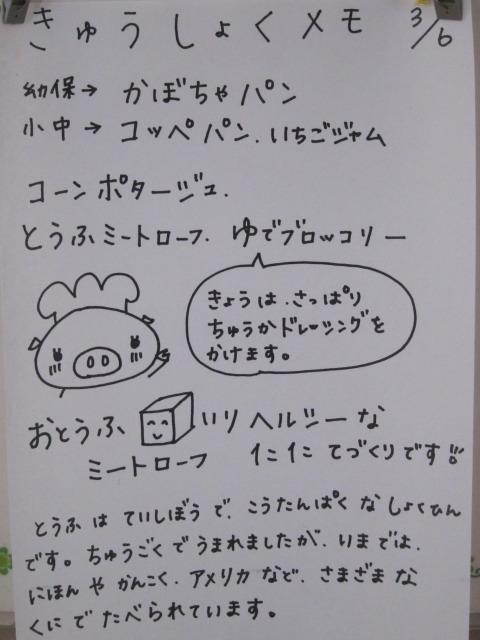 きゅうしょくメモ 3/6
幼保→ かぼちゃパン
小中→ コッペパン.いちごジャム
コーンポタージュ.
とうふミートローフ. ゆでブロッコリー
きょうは.さっぱり
ちゅうかドレーシングを
かけます。
おとうふ いり ヘルシーな
ミートローフ てづくりです!!
とうふは ていしぼうで.こうたんぱくな しょくひん
です。ちゅうごくで うまれましたが.いまでは.
にほんや かんこく.アメリカなど.さまざまな
くにで たべられています。